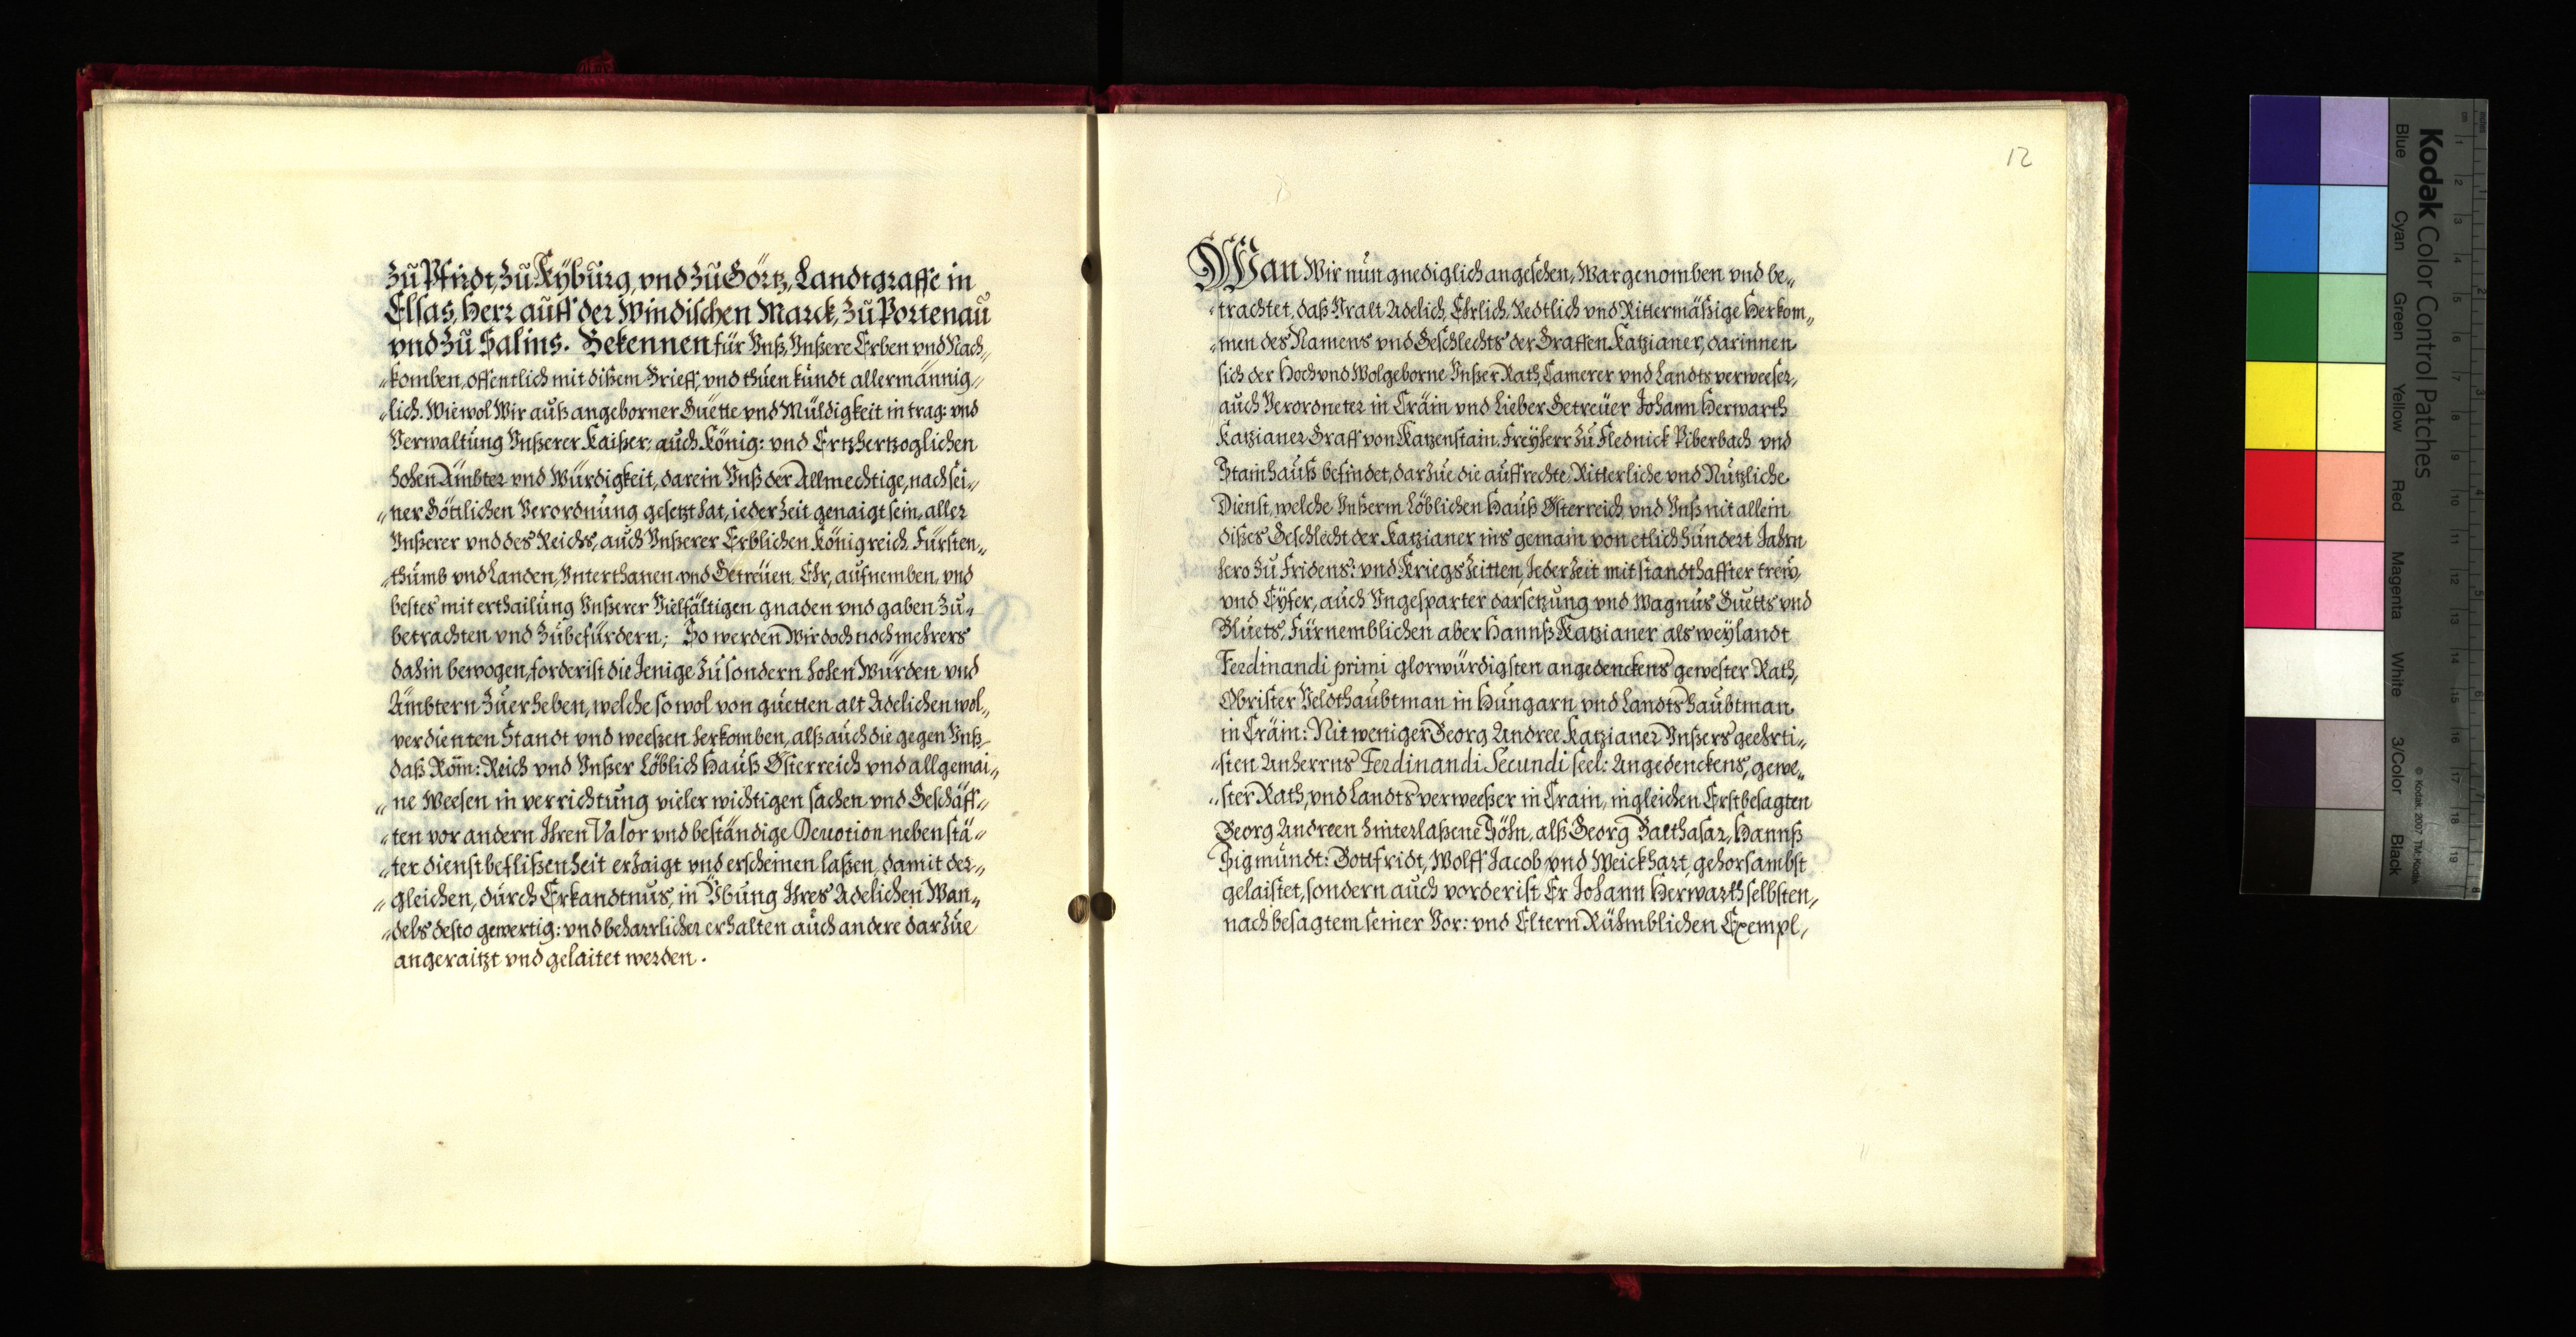 Zu Pfirdt, Zu Kyburg, vnd Zu Görtz, Landtgraffe in
Elsas, Herr auff der Windischen Marck, Zu Portenau
vnd Zu Salins. Bekennen für Vnß, Vnßere Erben vnd Nach„
„komben, offentlich mit dißem Brieff, vnd thuen kundt allermännig„
„lich. Wiewol Wir auß angeborner Guette vnd Müldigkeit in trag: vnd
Verwaltung Vnßerer Kaißer: auch König: vnd Ertzhertzoglichen
hohen Ämbter vnd Würdigkeit, darein Vnß der Allmechtige, nach sei„
„ner Göttlichen Verordnung gesetzt hat, ieder Zeit genaigt sein, aller
Vnßerer vnd des Reichs, auch Vnßerer Erblichen Königreich, Fürsten„
„thumb vnd Landen, Vnterthanen vnd Getreüen, Ehr, aufnemben, vnd
bestes mit erthailung Vnßerer Vielfältigen gnaden vnd gaben Zu„
betrachten vnd Zubefürdern; So werden Wir doch noch mehrers
dahin bewogen, forderist die Jenige Zu sondern hohen Würden vnd
Ämbtern Zuerheben, welche so wol von guetten alt Adelichen wol„
verdienten Standt vnd weeßen herkomben, alß auch die gegen Vnß
daß Röm: Reich vnd Vnßer Löblich Hauß Österreich vnd allgemai„
„ne Weesen in verrichtung vieler wichtigen sachen vnd Geschäff„
„ten vor andern Ihren Valor vnd beständige Deuotion neben stä„
„ter dienstbeflißenheit erzaigt vnd erscheinen laßen, damit der„
„gleichen, durch Erkandtnus, in Übung Ihres Adelichen Wan„
„dels desto gewertig: vnd beharrlicher erhalten auch andere darzue
angeraitzt vnd gelaitet werden.
12
Wan Wir nun gnediglich angesehen, War genomben vnd be„
„trachtet, daß Vralt Adelich, Ehrlich, Redtlich vnd Rittermäßige Herkom„
„men des Namens vnd Geschlechts der Graffen Katzianer, darinnen
sich der Hoch vnd Wolgeborne Vnßer Rath, Camerer vnd Landts verweeser,
auch Verordneter in Cräin vnd Lieber Getreüer Johann Herwarth
Katzianer Graff von Katzenstain, Freyherr Zu Flednick Piberbach vnd
Stainhauß befindet, darzue die auffrechte, Ritterliche vnd Nutzliche
Dienst, welche Vnßerm Löblichen Hauß Österreich, vnd Vnß nit allein
dißes Geschlecht der Katzianer ins gemain von etlich hundert Jahrn
hero Zu Fridens: vnd Kriegs Zeitten, Jeder Zeit mit standthaffter trew,
vnd Eyfer, auch Vngesparter darsetzung vnd Wagnus Guetts vnd
Bluets, Fürnemblichen aber Hannß Katzianer als weylandt
Ferdinandi primi glorwürdigsten angedenckens gewester Rath,
Obrister Veldthaubtman in Hungarn vnd Landtshaubtman
in Cräin: Nit weniger Georg Andree Katzianer Vnßers geehrti„
„sten Anherrns Ferdinandi Secundi seel: Angedenckens, gewe„
„ster Rath, vnd Landts verweeßer in Crain, ingleichen Erstbesagten
Georg Andreen hinterlaßene Söhn, alß Georg Balthasar, Hannß
Sigmundt: Gottfridt, Wolff Jacob vnd Weickhart, gehorsambst
gelaistet, sondern auch vorderist Er Johann Herwarth selbsten,
nach besagtem seiner Vor: vnd Eltern Rühmblichen Exempl,
Kodak Color Control Patches
Blue
Cyan
Green
Yellow
Red
Magenta
White
3/Color
Black
© Kodak, 2007 TM: Kodak